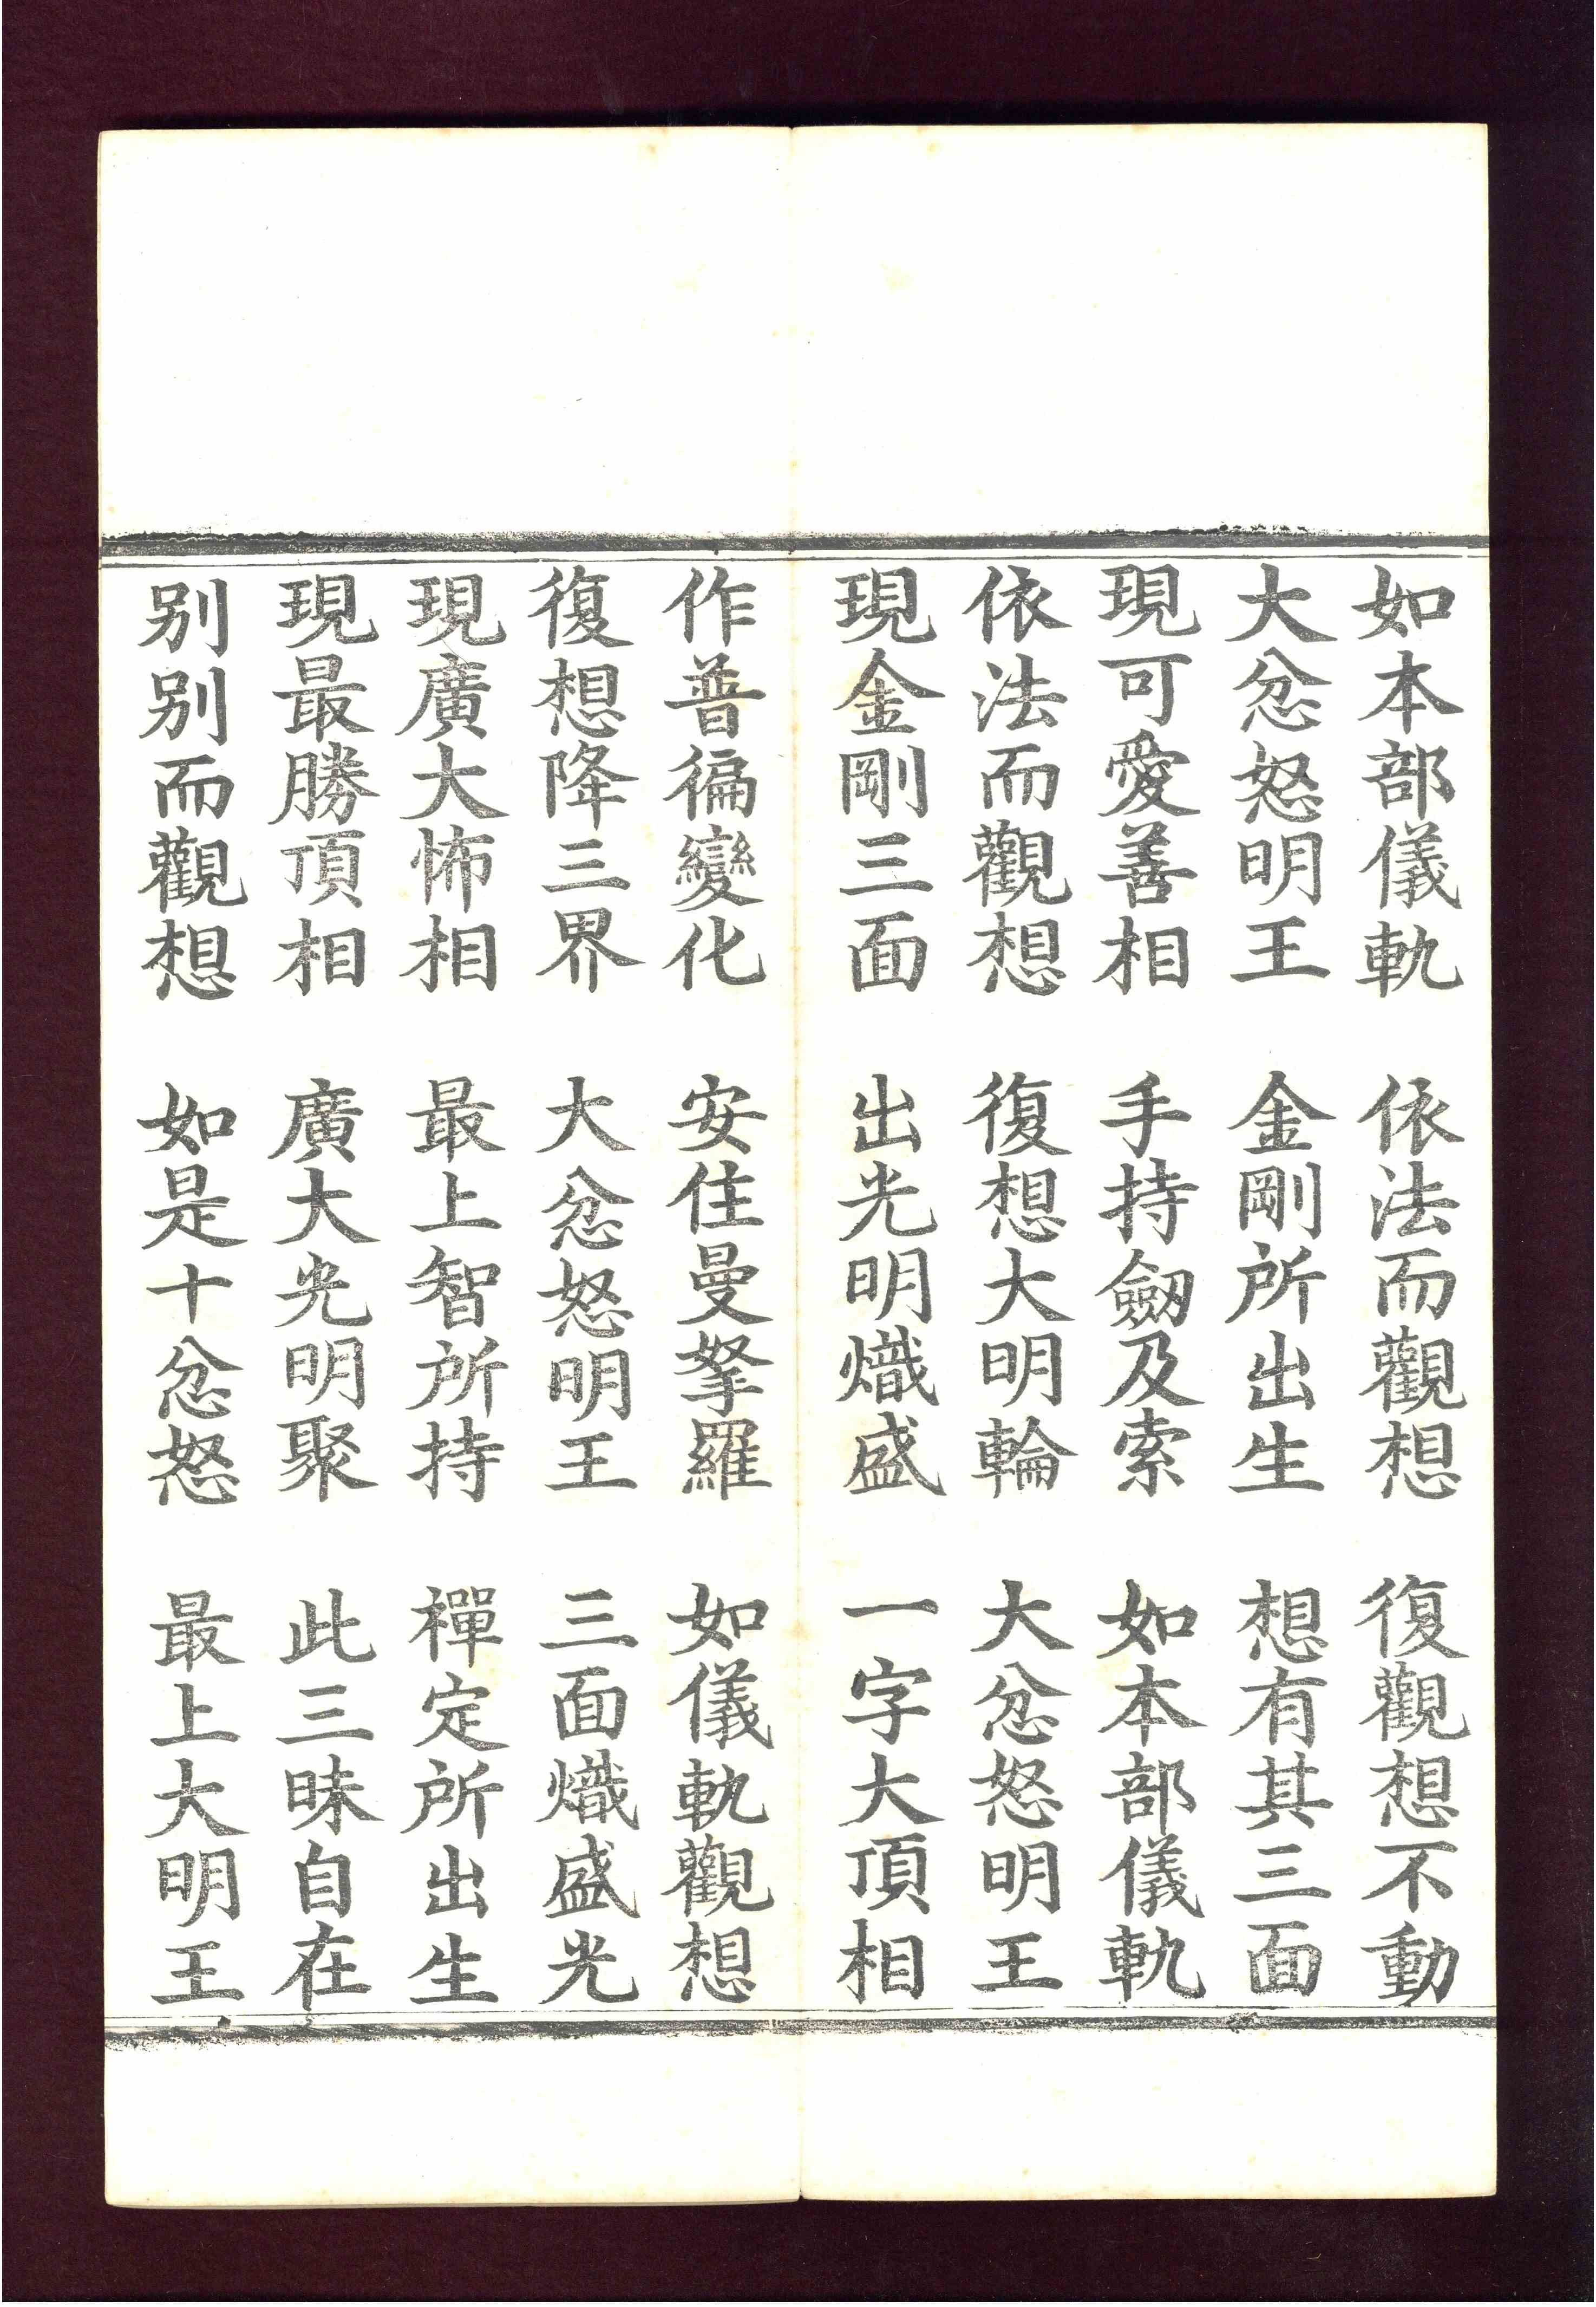 如本部儀軌　依法而觀想　復觀想不動
大忿怒明王　金剛所出生　想有其三面
現可愛善相　手持劒及索　如本部儀軌
依法而觀想　復想大明輪　大忿怒明王
現金剛三面　出光明熾盛　一字大頂相
作普徧變化　安住曼拏羅　如儀軌觀想
復想降三界　大忿怒明王　三面熾盛光
現廣大怖相　最上智所持　禪定所出生
現最勝頂相　廣大光明聚　此三昧自在
别别而觀想　如是十忿怒　最上大明王